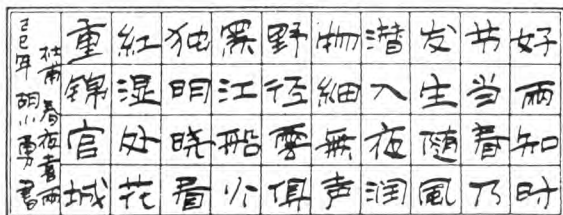 好雨知时
节当春乃
发生随風
潜入夜润
物細無声
野径雲俱
黑江船火
独明晓看
紅湿处花
重錦官城
杜甫 春夜喜雨
己巳年 胡小勇書